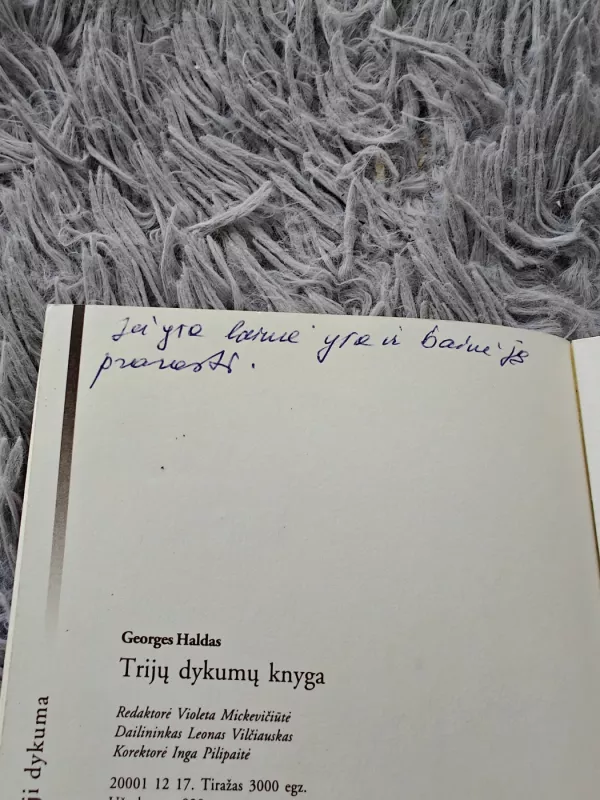 Jei yra laimė yra ir baimė ją
prarasti.
Georges Haldas
Trijų dykumų knyga
Redaktorė Violeta Mickevičiūtė
Dailininkas Leonas Vilčiauskas
Korektorė Inga Pilipaitė
20001 12 17. Tiražas 3000 egz.
ji dykuma